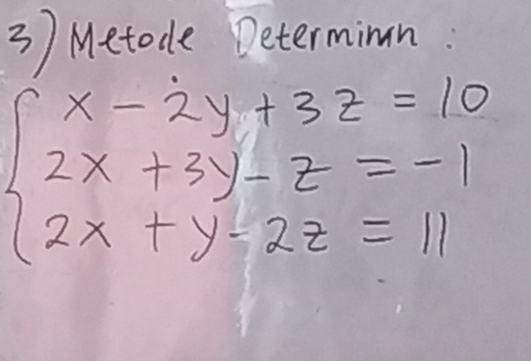 3) Metode Determinan :
x - 2y + 3z = 10
2x + 3y - z = -1
2x + y - 2z = 11